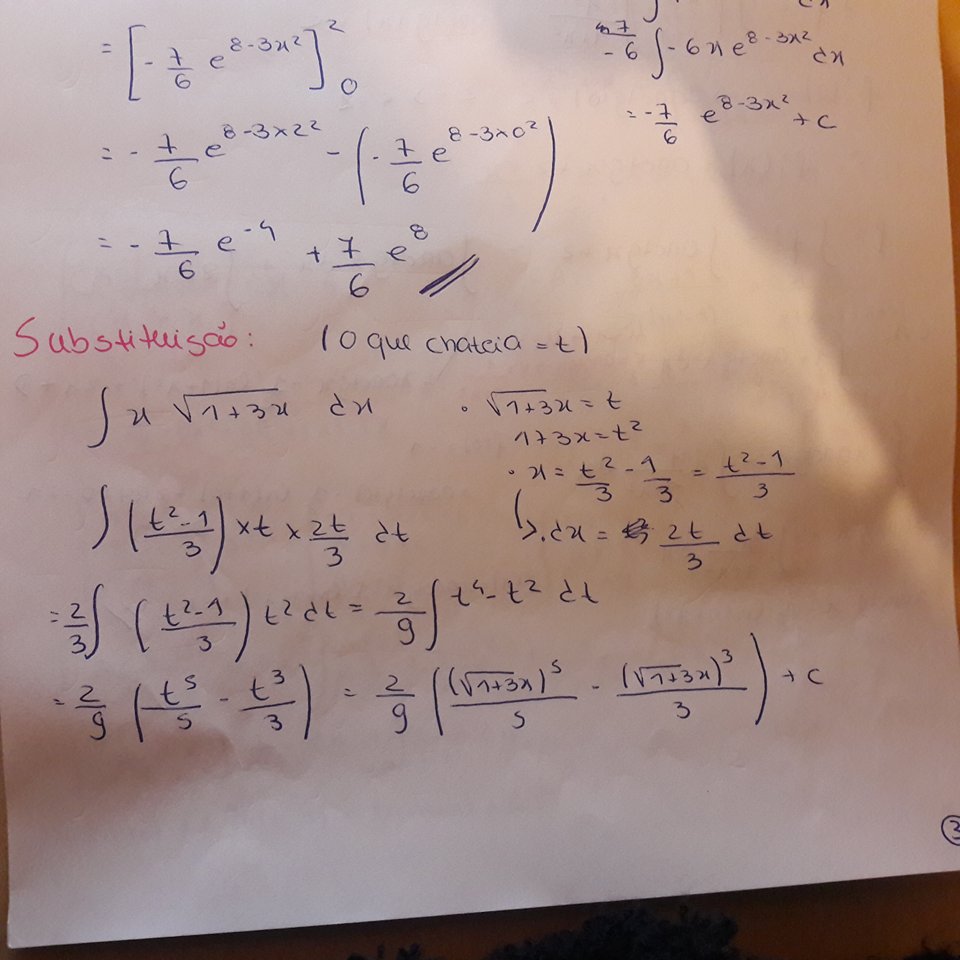 = [-7/6 e^(8-3x²)]₀²
-7/6 ∫ -6x e^(8-3x²) dx
= -7/6 e^(8-3x²) + c
= -7/6 e^(8-3×2²) - (-7/6 e^(8-3×0²))
= -7/6 e^(-4) + 7/6 e^8
Substituição: (o que chateia = t)
∫ x √(1+3x) dx
• √(1+3x) = t
1+3x = t²
• x = t²/3 - 1/3 = (t²-1)/3
↳ • dx = 2t/3 dt
∫ ((t²-1)/3) × t × 2t/3 dt
= 2/3 ∫ ((t²-1)/3) t² dt = 2/9 ∫ t⁴ - t² dt
= 2/9 (t⁵/5 - t³/3) = 2/9 ((√(1+3x))⁵/5 - (√(1+3x))³/3) + c
3